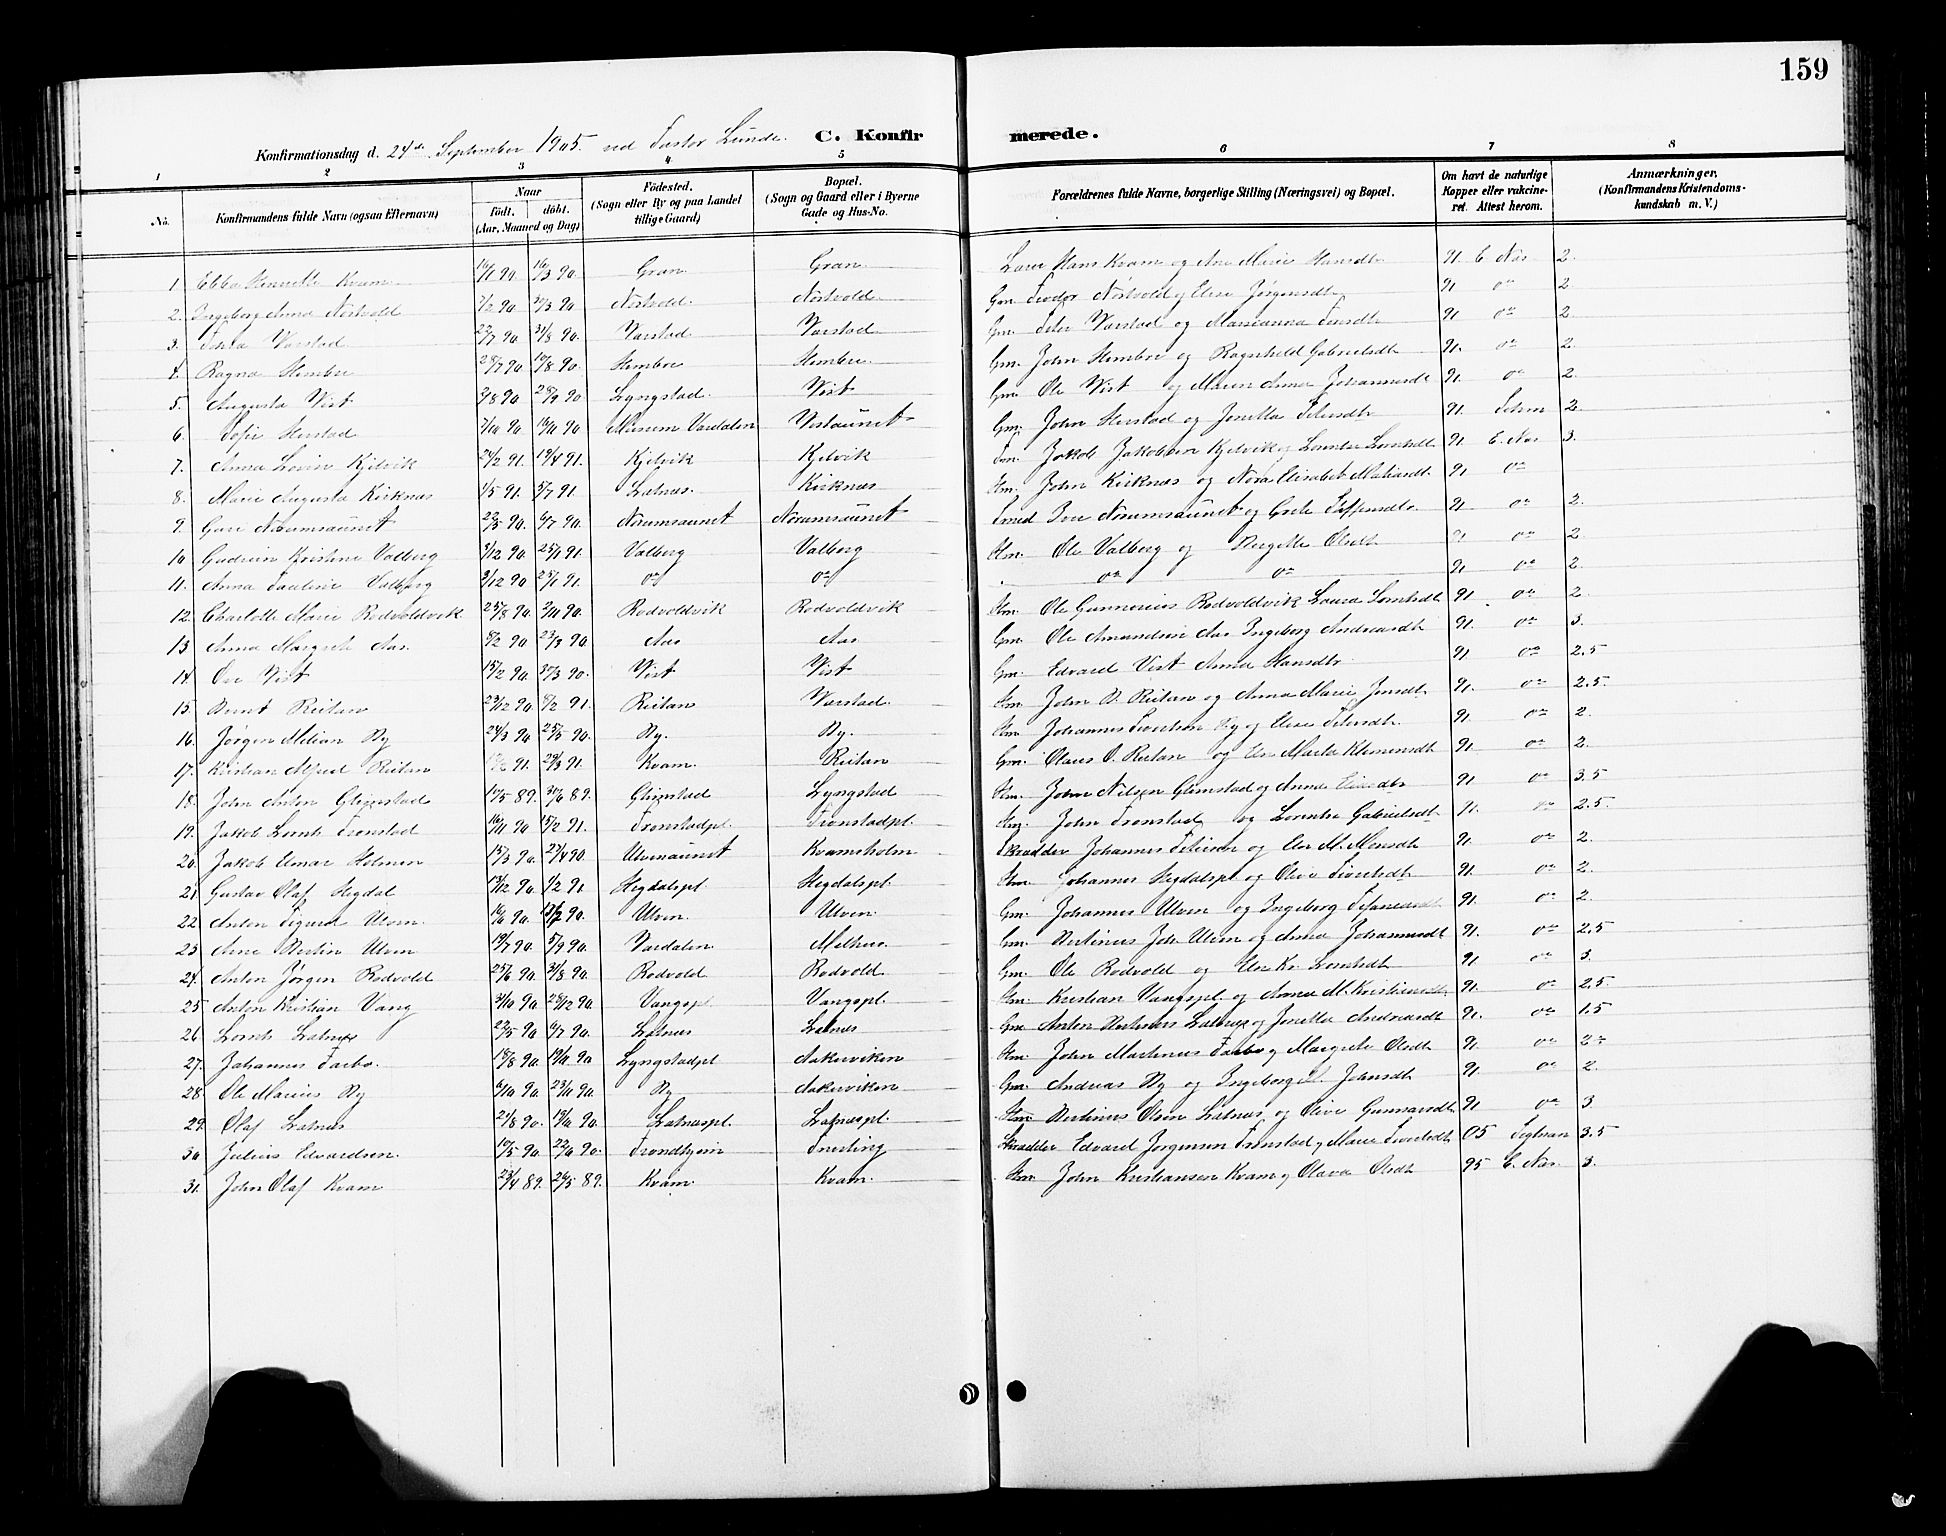 159
Konfirmationsdag d. 24de September 1905 ved Pastor Lunde. C. Konfirmerede.
1 2 3 4 5 6 7 8
No. Konfirmandens fulde Navn (ogsaa Efternavn) Naar födt. döbt. (Aar, Maaned og Dag) Födested. (Sogn eller By og paa Landet tillige Gaard) Bopæl. (Sogn og Gaard eller i Byerne Gade og Hus-No. Forældrenes fulde Navne, borgerlige Stilling (Næringsvei) og Bopæl. Om havt de naturlige Kopper eller vakcineret. Attest herom. Anmærkninger. (Konfirmandens Kristendomskundskab m. V.)
1. Ebba Henrette Kvam 16/1 90 16/3 90 Gran Gran Hans Kvam og Ane Marie Hansdt 91 E. Næs 2.
2. Ingeborg Anna Nöstvold 7/2 90 30/3 90 Nöstvold Nöstvold Gm. Peder Nöstvold og Elise Jørgensdt 91 do 2
3. Vaastad 22/7 90 31/8 90 Vaastad Vaastad Gm. Peter Vaastad og Marianna 91 do 2.
4. Ragna Hembre 28/7 90 10/8 90 Hembre Hembre Gm. John Hembre og Ragnhild Gabrielsdt 91. do 2.
5. Augusta Vist 2/8 90 28/9 90 Lyngstad Vist Gm. Ole Vist og Maren Anna Johannesdt 91. do 2.
6. Sofie Herstad 7/10 90 16/11 90 Musem Værdalen Vestaunet Gm. John Herstad og Jonetta Petersdt 91. 2
7. Anna Lovise Kjelvik 24/2 91. 19/4 91. Kjelvik Kjelvik Jakob Jakobsen Kjelvik og Lorntsdt 91 E. Næs 3.
8. Marie Augusta Kirknæs 1/5 91 5/7 91 Lætnæs. Kirknæs Hm. John Kirknæs og Nora Elisabet 91 do
9. Norumsaunet 22/5 90. 6/7 90 Norumsaunet Norumsaunet Smed Iver Norumsaunet og 91 do 2.
10 Gudrun Kristine Valberg 3/12 90 25/1 91. Valberg Valberg Hm. Ole Valberg og Bergitte Olsdt do 2
11. Anna Pauline Valberg 3/12 90 25/1 91. do do do do 91 do 2.
12. Charlotte Marie Rodvoldvik 25/8 90. 2/11 90. Rodvoldvik Rodvoldvik Hm. Ole Gunnerius Rodvoldvik Laura Lorntsdt 91. do 2.
13 Anna Margrete Aas 8/2 90 23/3 90. Aas Aas Gm. Ole Amandus Aas Ingeborg Andreasdt 91. do 3.
14. Ove Vist 15/2 90. 30/3 90. Vist Vist Gm. Edvard Vist Anna Hansdt 91 do 2.5
15. Bernt Reitan 23/12 90 8/2 91. Reitan Vaastad Hm. John B. Reitan og Anna Marie Jonsdt 91. do 2.5.
16. Jørgen Milian By 24/3 90 25/5 90. By. By. Hm. Johannes By og Elise Petersdt. 91. do 2
17. Kristian Alfred Reitan 91. 29/3 91. Kvam Reitan Gm. Olaus O. Reitan og Marta Klemensdt 91. do 2.
18. John Anton Glimstad 10/5 89. 30/6 89. Glimstad Lyngstad Hm. John Nilsen Glimstad og Anna 91 do 3.5
19. Jakob Lornts Tronstad 16/11 90 15/2 91. Tronstadpl. Tronstadpl. Hm. John Tronstad og Lorentse Gabrielsdt 91. do 2.5.
20. Jakob Elmar Holmen 15/3 90. 27/4 90. Ulvenaunet Kvamsholm Skrædder Johannes og M. Monsdt 91. do 2
21. Gustav Olaf Hegdal 13/12 90. 1/2 91. Hegdalspl. Hegdalspl. Hm. Johannes Hegdalspl. og Olive Iversdt 91. do 2.
22. Anton Sigurd Ulven. 90. 90. Ulven. Ulven. Gm. Johannes Ulven og Ingeborg 91. do 2
23. Arne Bertin Ulven 19/7 90. 5/9 90. Værdalen Melhus. Gm. Bertinus Joh Ulven og Anna Johannesdt 91. do 2.5
24. Anton Jørgen Rodvold 25/6 90. 31/8 90. Rodvold Rodvold. Gm. Ole Rodvold og Kr. Lorntsdt 91 do 3.
25 Anton Kristian Vang 31/10 90 28/12 90. Vangspl. Vangspl. Hm. Kristian Vangspl. og Anna M. Kristiansdt 91. do 2.5
26. Lornts Lætnæs 22/5 90 6/7 90. Lætnæs Lætnæs Gm. Anton Bertinus Lætnæs og Jonetta Andreasdt 91. do 1.5
27. Johannes Farbo. 18/8 90. 19/11 90 Lyngstadpl Aakervikken Hm. John Martinus Farbo og Margrete Olsdt 91. do 2
28. Ole Marius By 6/10 90 23/11 90. By Aakerviken Gm. Andreas By og Ingeborg Johnsdt 91. do 2.
29. Olaf Lætnæs 21/8 90. 90. Lætnæspl. Lætnæspl. Hm Bertinus Olsen Lætnæs og Olive Gunnarsdt 91 do 3.
30 Julius Edvardsen. 10/5 90. 22/6 90. Trondhjem Skrædder Edvard Jørgensen Tronstad og Marie 05 3.5
31. John Olaf Kvam 23/4 89. 26/5 89. Kvam. Kvam. Hm. John Kristiansen Kvam og Olava Olsdt 95 E. Næs. 3.